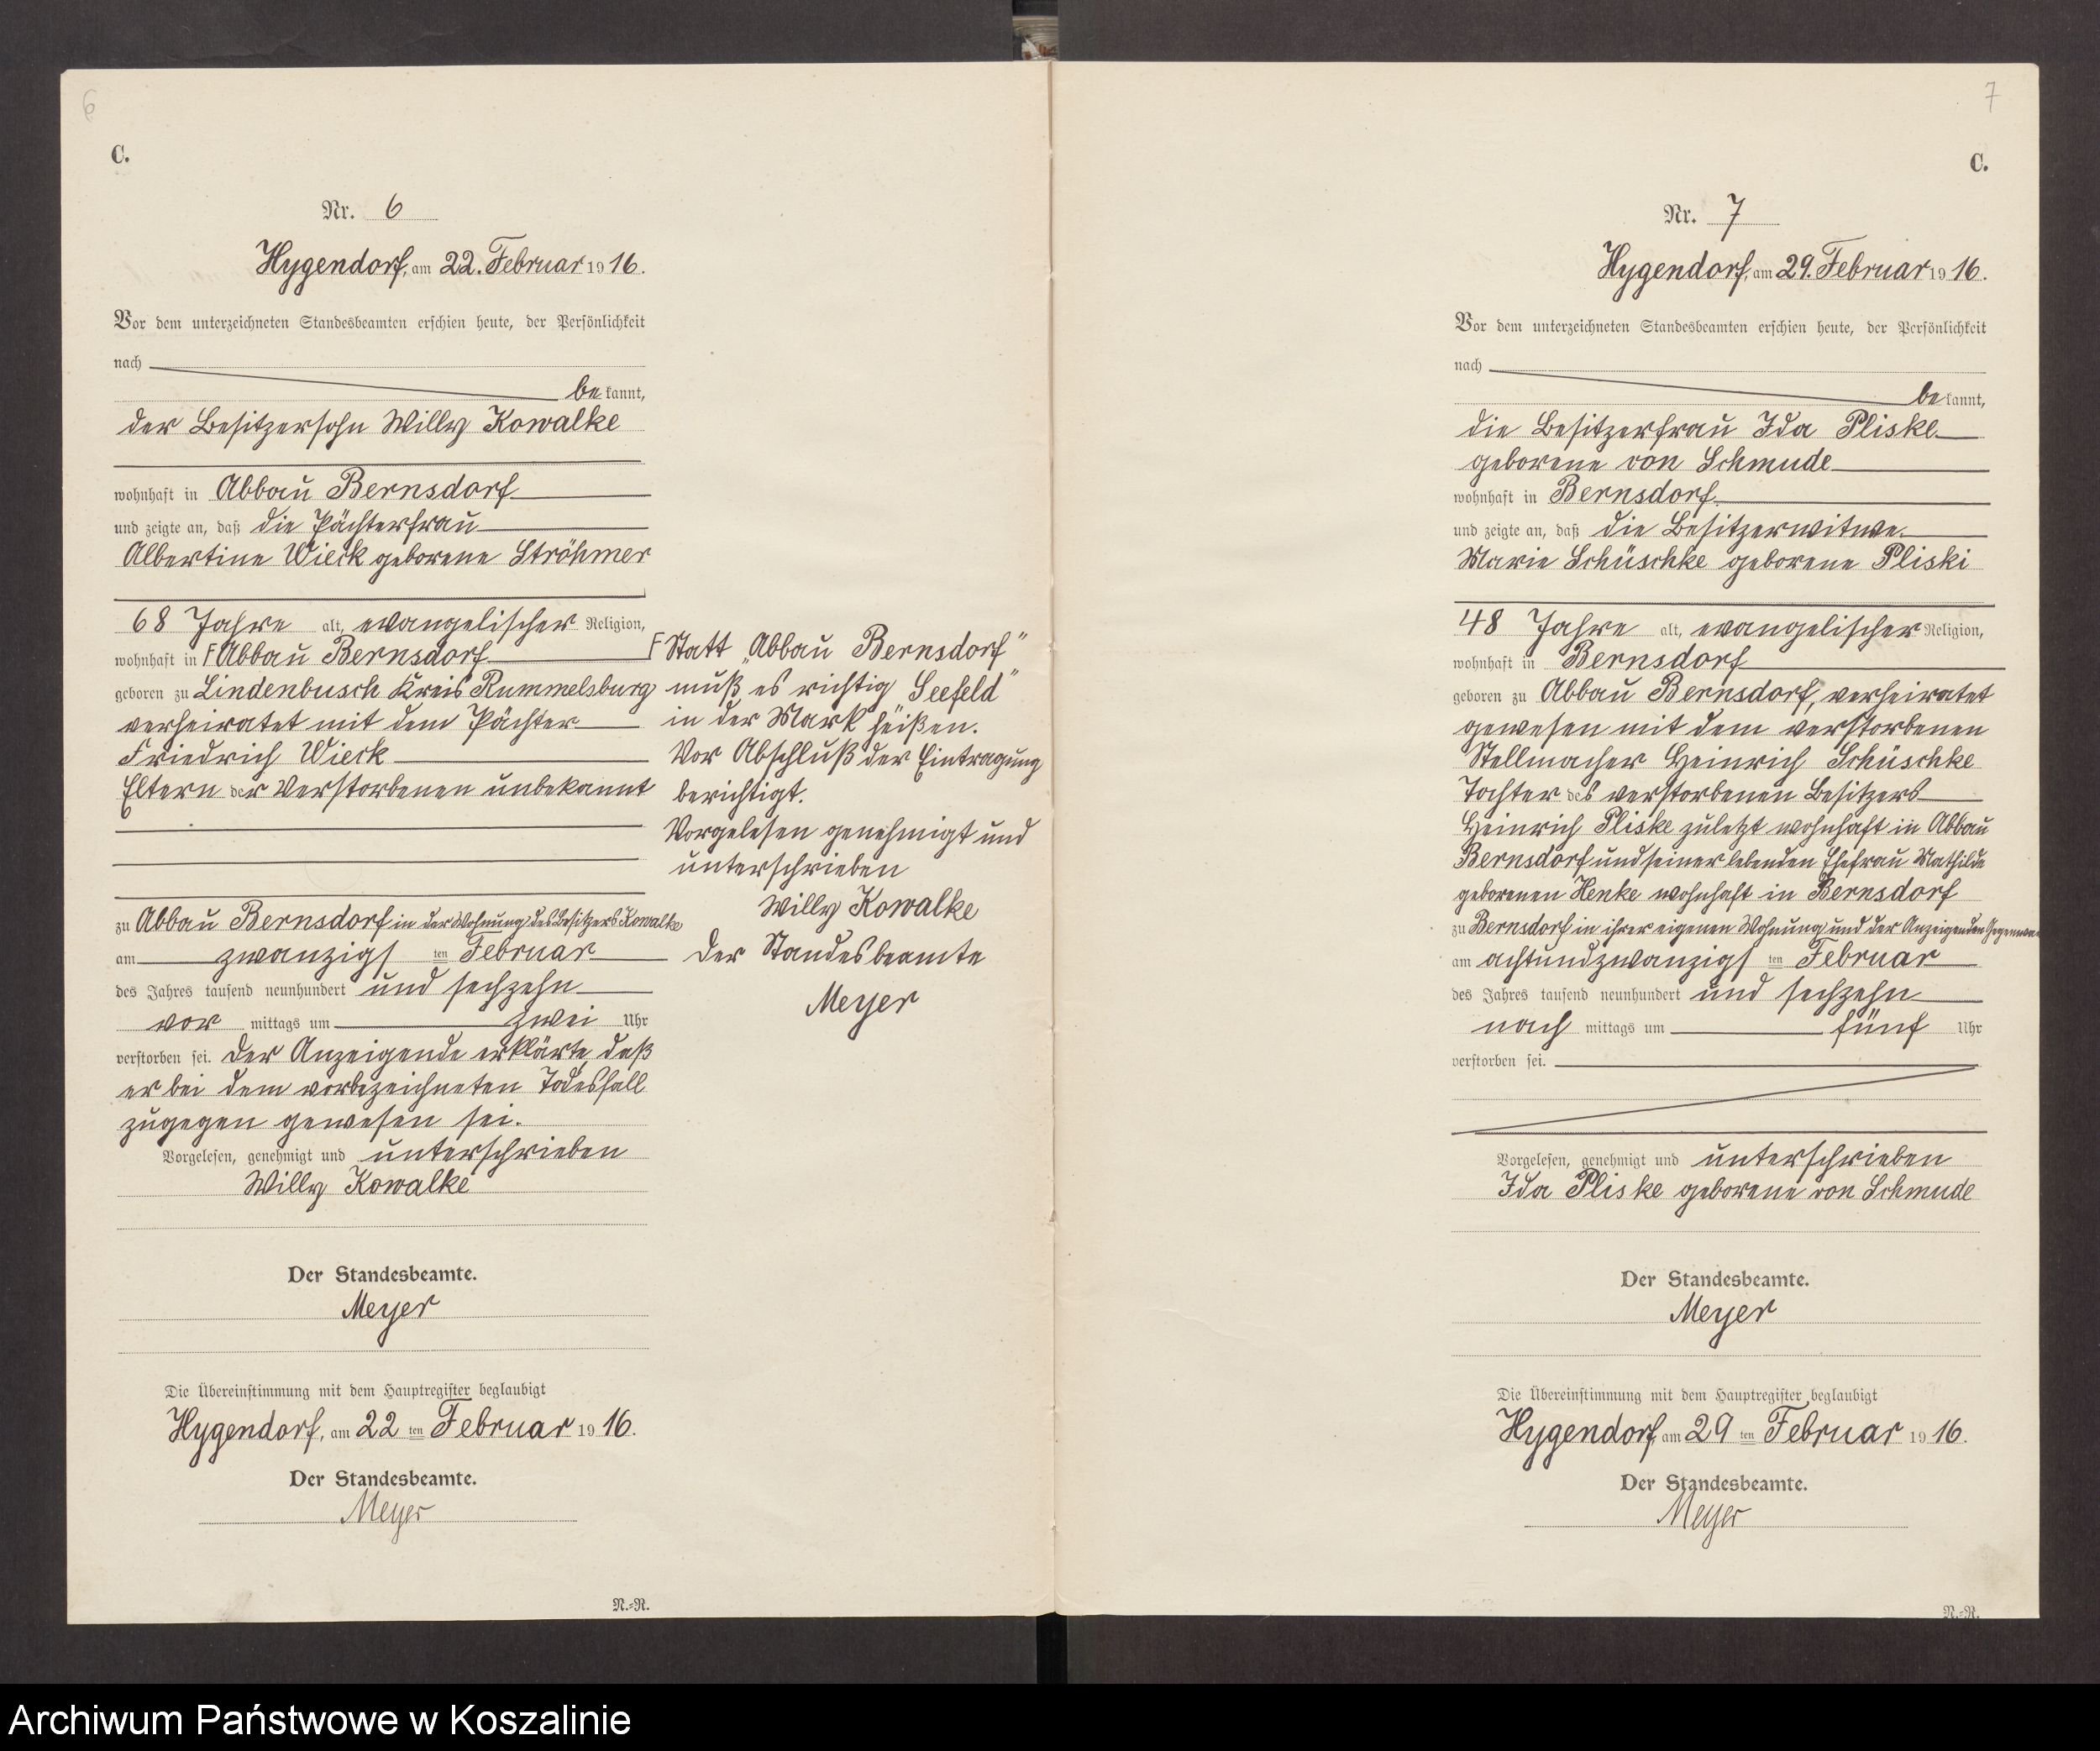 6
C.
Nr. 6
Hygendorf, am 22. Februar 1916.
Vor dem unterzeichneten Standesbeamten erschien heute, der Persönlichkeit
nach
be kannt,
der Besitzersohn Willy Kowalke
wohnhaft in Abbau Bernsdorf
und zeigte an, daß die Pächterfrau
Albertine Wieck geborene Ströhmer
68 Jahre alt, evangelischer Religion,
wohnhaft in F Abbau Bernsdorf
geboren zu Lindenbusch Kreis Rummelsburg
verheiratet mit dem Pächter
Friedrich Wieck
Eltern der Verstorbenen unbekannt
zu Abbau Bernsdorf in der Wohnung des Besitzers Kowalke
am zwanzigsten Februar
des Jahres tausend neunhundert und sechzehn
vor mittags um zwei Uhr
verstorben sei. Der Anzeigende erklärte, daß
er bei dem vorbezeichneten Todesfall
zugegen gewesen sei.
Vorgelesen, genehmigt und unterschrieben
Willy Kowalke
Der Standesbeamte.
Meyer
Die Übereinstimmung mit dem Hauptregister beglaubigt
Hygendorf, am 22 ten Februar 1916.
Der Standesbeamte.
Meyer
N.-R.
F Statt „Abbau Bernsdorf"
muß es richtig „Seefeld"
in der Mark heißen.
Vor Abschluß der Eintragung
berichtigt.
Vorgelesen genehmigt und
unterschrieben
Willy Kowalke
Der Standesbeamte
Meyer
7
C.
Nr. 7
Hygendorf, am 29. Februar 1916.
Vor dem unterzeichneten Standesbeamten erschien heute, der Persönlichkeit
nach
be kannt,
die Besitzerfrau Ida Pliske
geborene von Schmude
wohnhaft in Bernsdorf
und zeigte an, daß die Besitzerwitwe
Marie Schüschke geborene Pliski
48 Jahre alt, evangelischer Religion,
wohnhaft in Bernsdorf
geboren zu Abbau Bernsdorf, verheiratet
gewesen mit dem verstorbenen
Stellmacher Heinrich Schüschke
Tochter des verstorbenen Besitzers
Heinrich Pliske zuletzt wohnhaft in Abbau
Bernsdorf und seiner lebenden Ehefrau Mathilde
geborenen Henke wohnhaft in Bernsdorf
zu Bernsdorf in ihrer eigenen Wohnung und der Anzeigenden
am achtundzwanzigsten Februar
des Jahres tausend neunhundert und sechzehn
nach mittags um fünf Uhr
verstorben sei.
Vorgelesen, genehmigt und unterschrieben
Ida Pliske geborene von Schmude
Der Standesbeamte.
Meyer
Die Übereinstimmung mit dem Hauptregister beglaubigt
Hygendorf, am 29 ten Februar 1916.
Der Standesbeamte.
Meyer
N.-R.
Archiwum Państwowe w Koszalinie